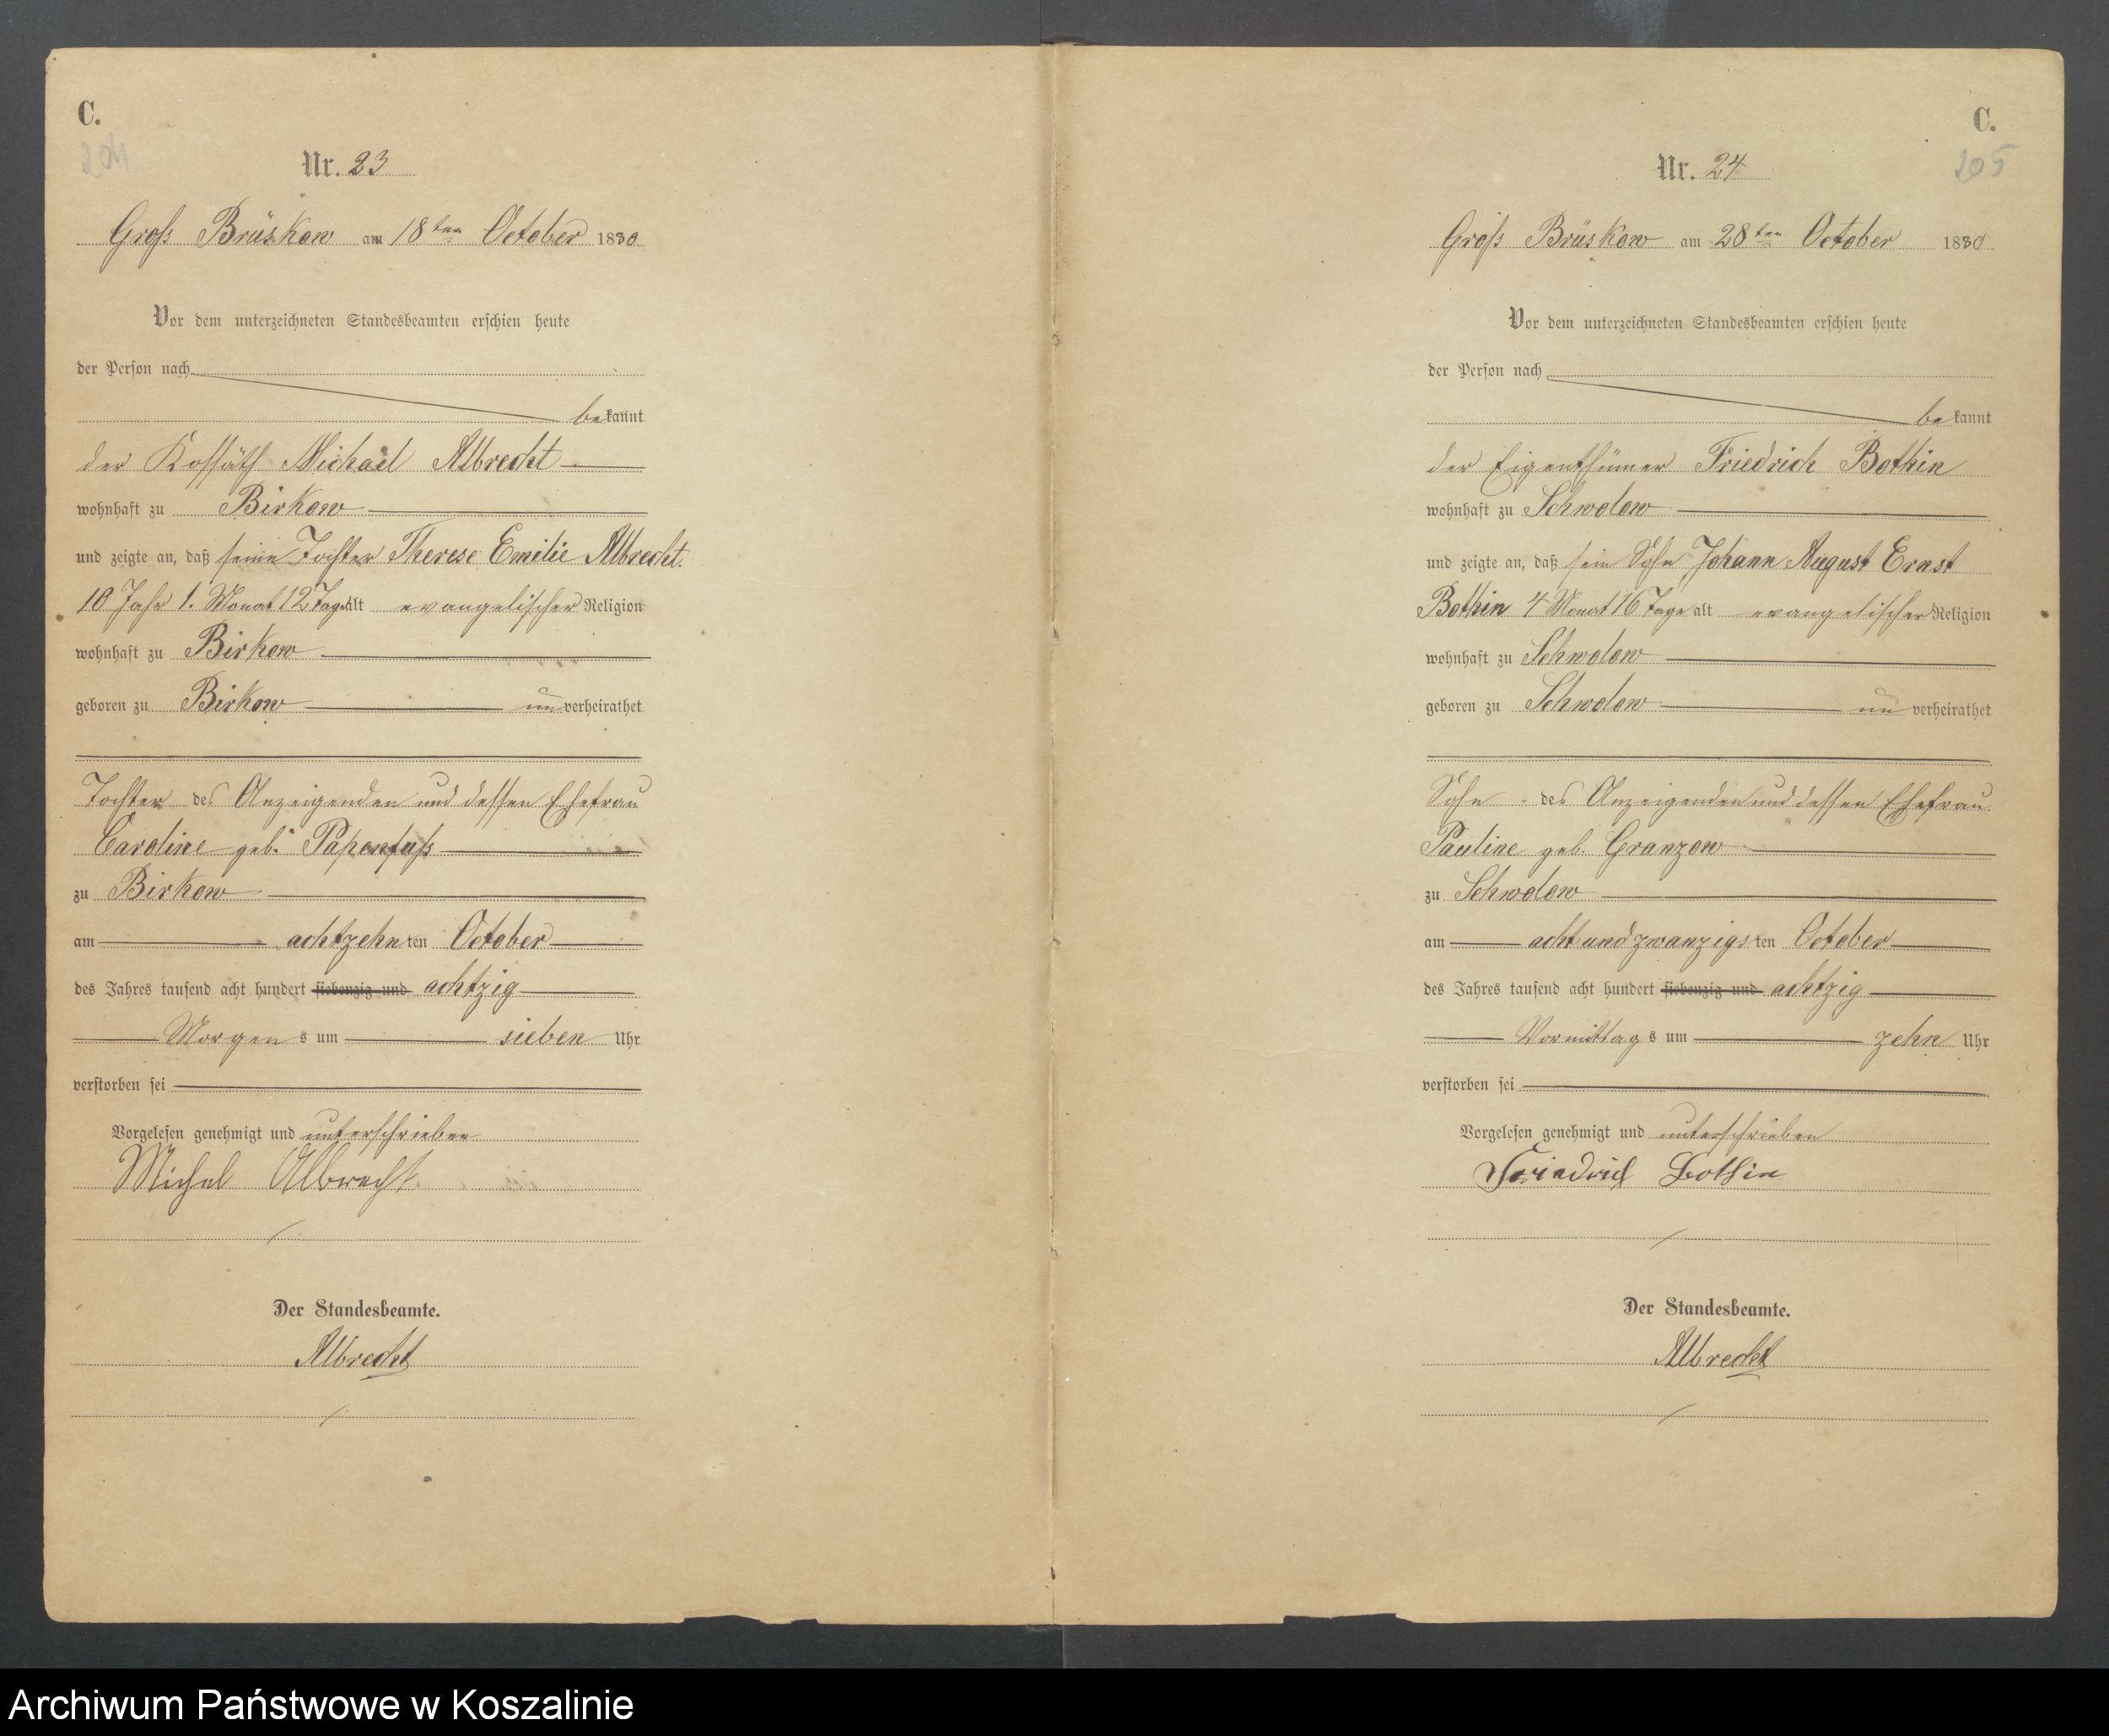 C.
204
Nr. 23
Groß Brüskow am 18ten October 1880
Vor dem unterzeichneten Standesbeamten erschien heute
der Person nach
bekannt
der Kossäth Michael Albrecht
wohnhaft zu Birkow
und zeigte an, daß seine Tochter Therese Emilie Albrecht.
10 Jahr 1. Monat 12 Tage alt evangelischer Religion
wohnhaft zu Birkow
geboren zu Birkow unverheirathet
Tochter des Anzeigenden und dessen Ehefrau
Caroline geb. Papenfuß
zu Birkow
am achtzehnten October
des Jahres tausend acht hundert siebenzig und achtzig
Morgens um sieben Uhr
verstorben sei
Vorgelesen genehmigt und unterschrieben
Michal Albrecht
Der Standesbeamte.
Albrecht
C.
205
Nr. 24
Groß Brüskow am 28ten October 1880
Vor dem unterzeichneten Standesbeamten erschien heute
der Person nach
bekannt
der Eigenthümer Friedrich Bothin
wohnhaft zu Schwolow
und zeigte an, daß sein Sohn Johann August Ernst
Bothin 4 Monat 16 Tage alt evangelischer Religion
wohnhaft zu Schwolow
geboren zu Schwolow unverheirathet
Sohn des Anzeigenden und dessen Ehefrau
Pauline geb. Granzow
zu Schwolow
am acht und zwanzigsten October
des Jahres tausend acht hundert siebenzig und achtzig
Vormittags um zehn Uhr
verstorben sei
Vorgelesen genehmigt und unterschrieben
Friedrich Bothin
Der Standesbeamte.
Albrecht
Archiwum Państwowe w Koszalinie